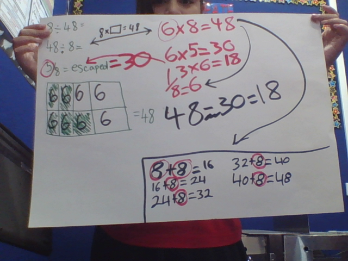 8÷48=
48÷8=
8×□=48
6×8=48
/8=escaped=30
6×5=30
3×6=18
1/8=6
48=30=18
6 6 6 6
6 6 6 6
=48
8+8=16
16+8=24
24+8=32
32+8=40
40+8=48